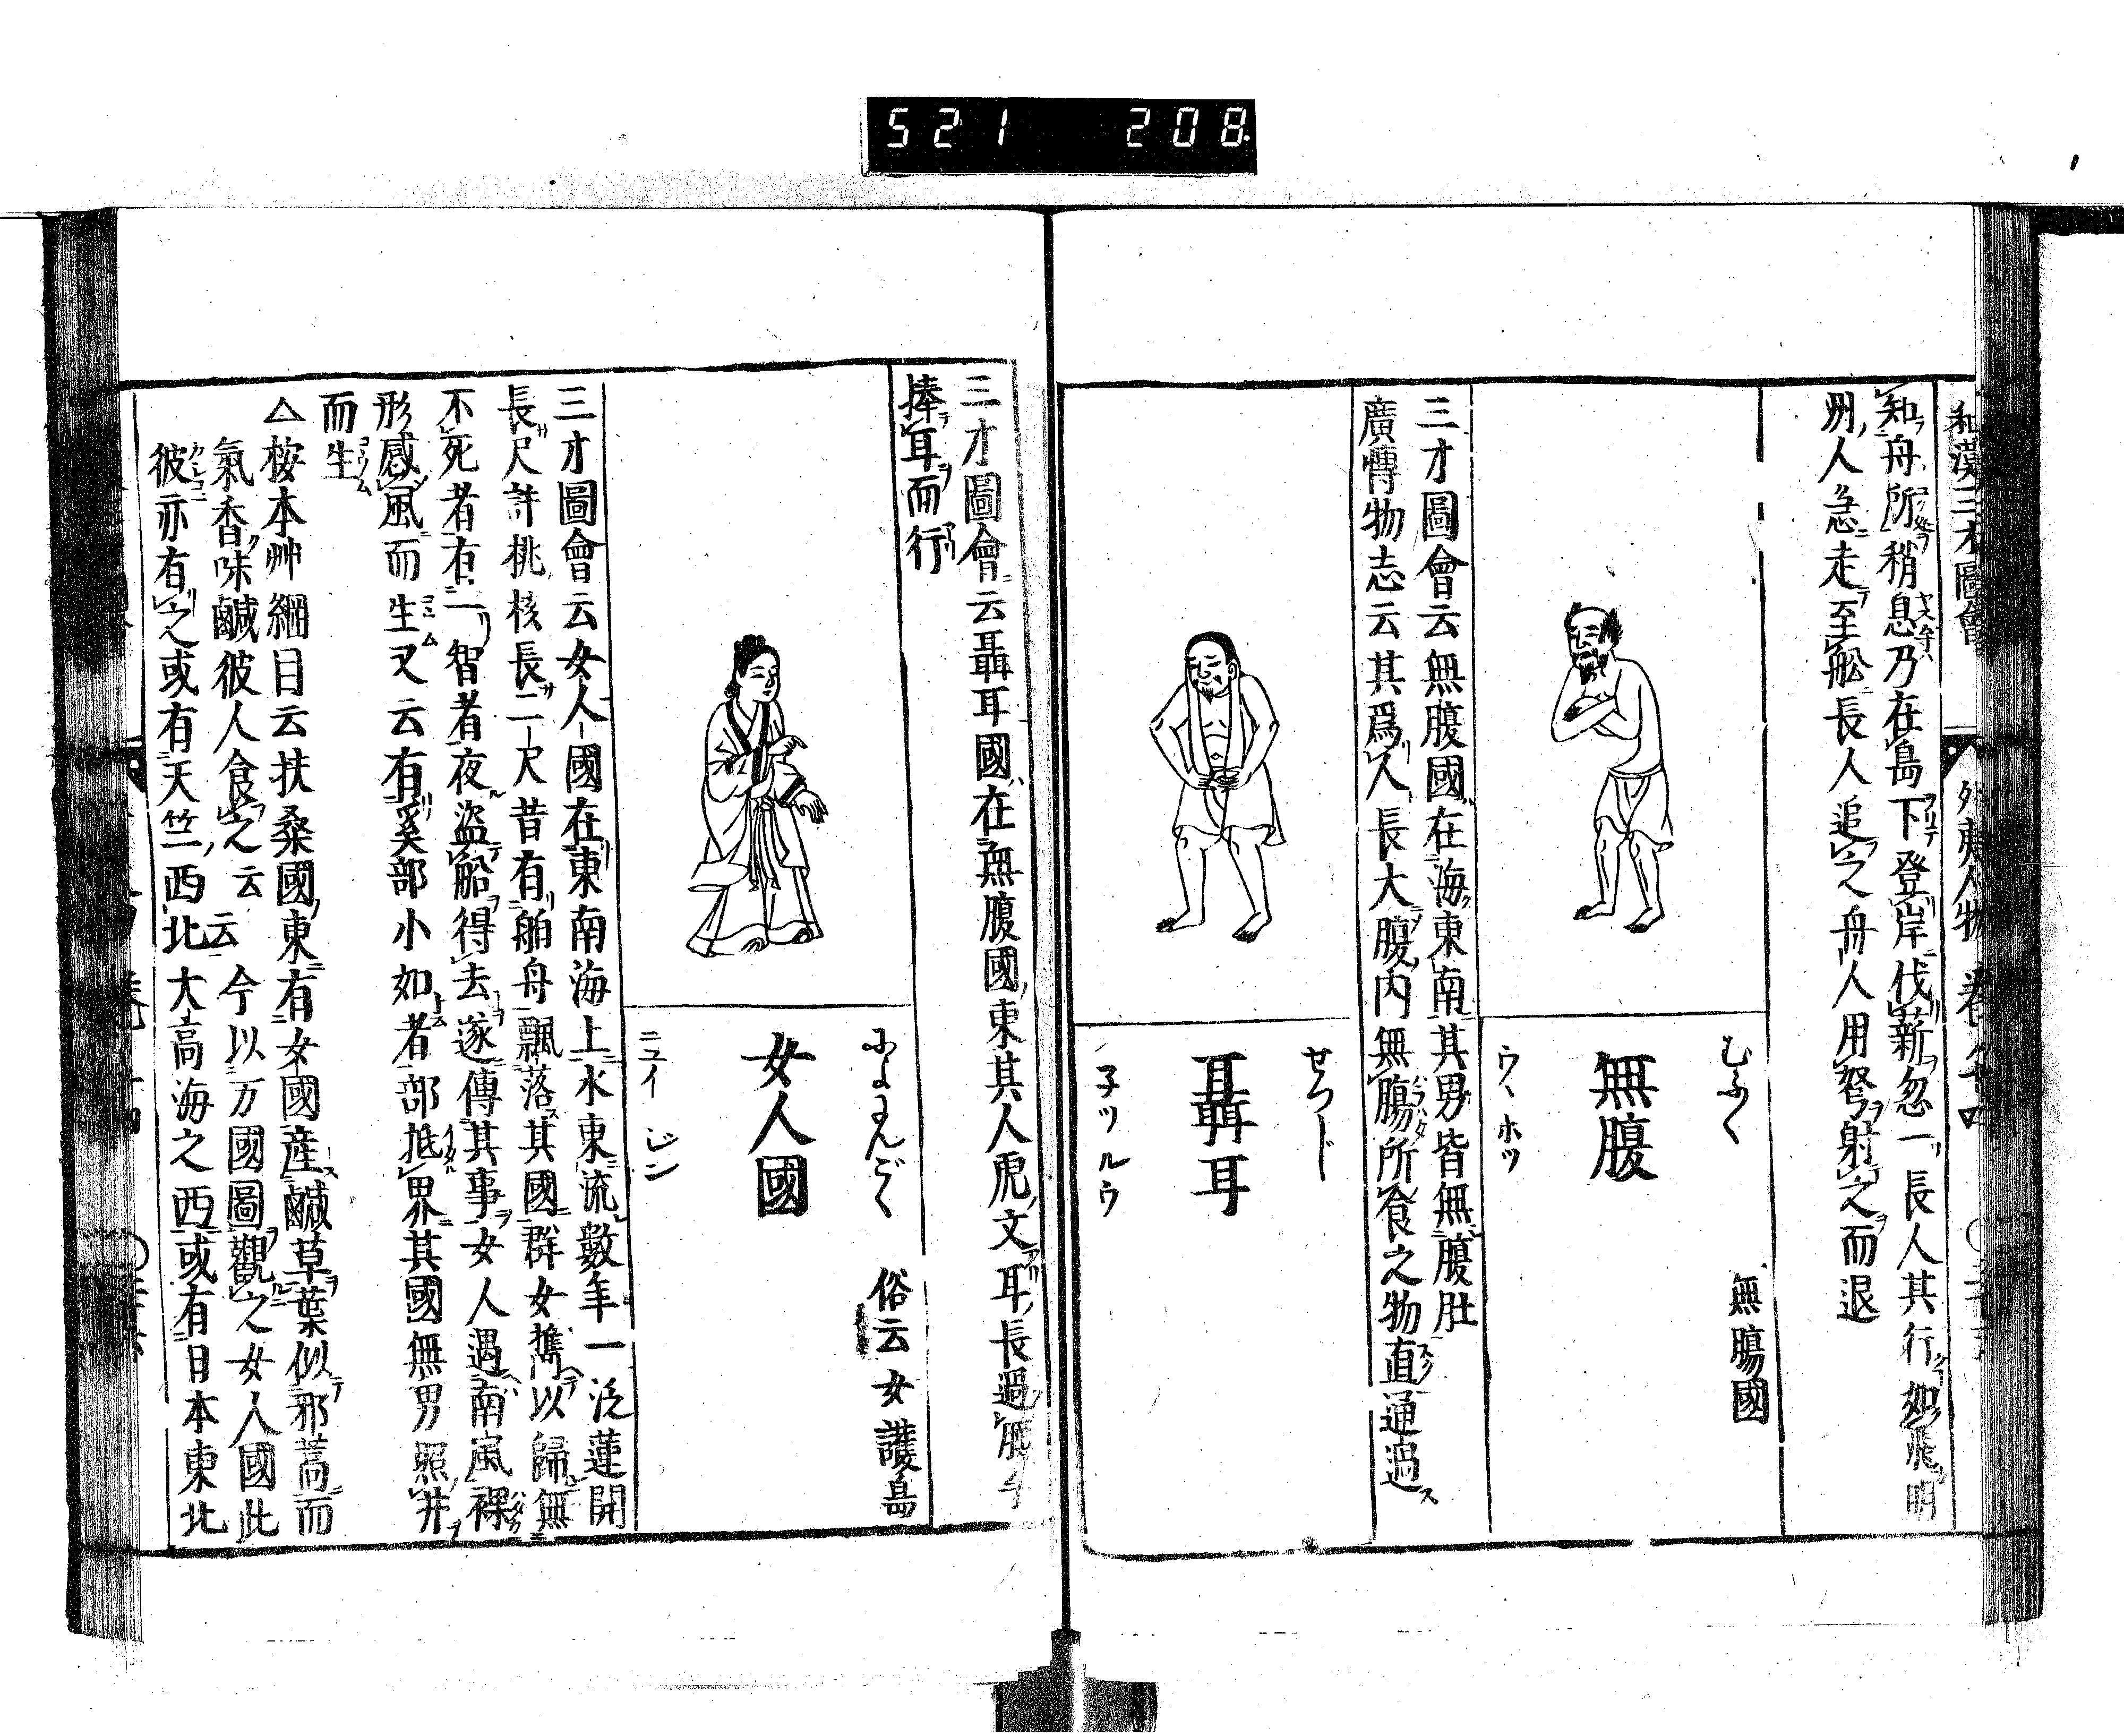 521 208
和漢三才圖會 外夷人物 卷
知舟所稍息乃在島下登岸伐薪忽一長人其行如飛明
州人急走至舩長人追之舟人用弩射之而退
むふく
無腸國
無腹
ウヽホツ
三才圖會云無腹國在海東南其男皆無腹肚
廣愽物志云其爲人長大腹内無腸所食之物直通過
せつじ
聶耳
子ツルウ
三才圖會云聶耳國在無腹國東其人虎文耳長過腰手
捧耳而行
によにんごく
俗云女護島
女人國
ニユイ ジン
三才圖會云女人國在東南海上水東流數年一泛蓮開
長尺許桃核長二尺昔有舶舟飄落其國群女擕以歸無
不死者有一智者夜盜船得去遂傳其事女人遇南風裸
形感風而生又云有奚部小如者部抵界其國無男照井
而生
△桉本艸綱目云扶桑國東有女國産鹹草葉似邪蒿而
氣香味鹹彼人食之云云今以万國圖觀之女人國此
彼亦有之或有天竺西北大高海之西或有日本東北